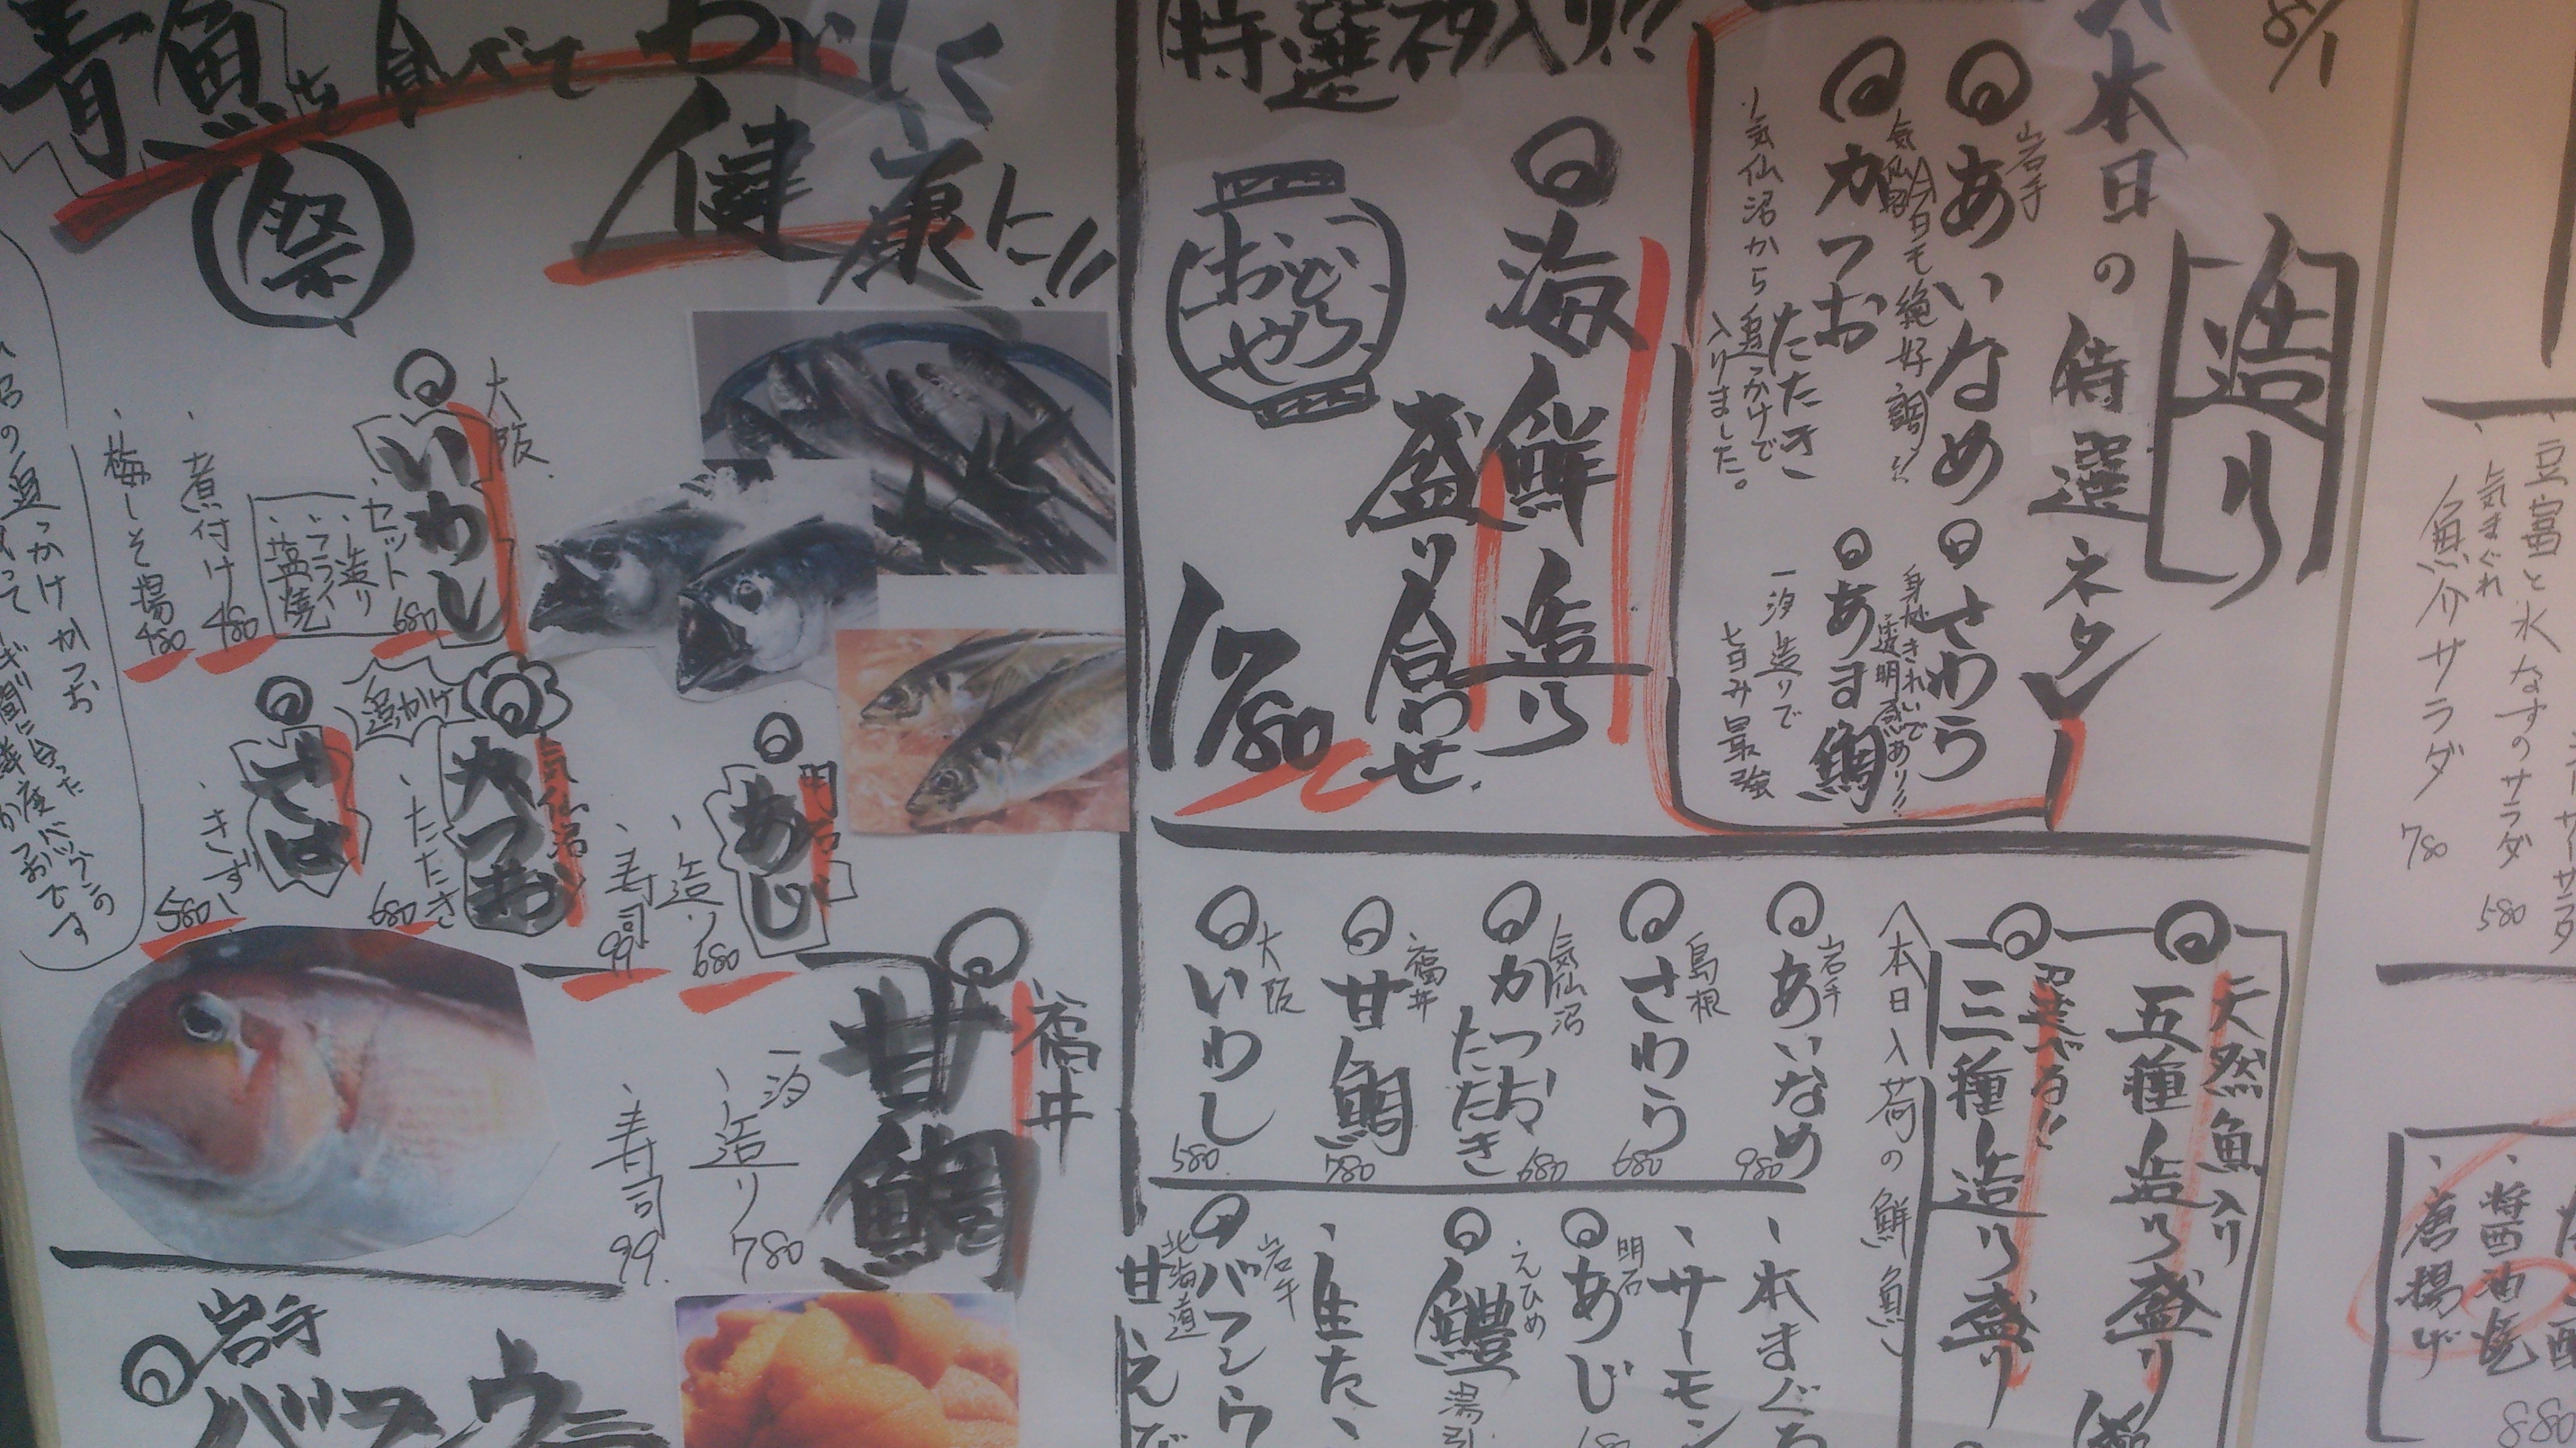 8/1
造り
本日の特選ネタ
岩手
あいなめ
さわう
身がきれいで
透明感あり!!
気仙沼
今日も絶好調!!
かつお
たたき
気仙沼から追っかけで
入りました。
あま鯛
一汐造りで
甘み最強
特選ネタ入り!!
海鮮造り
盛り合わせ
1780
天然魚入り
五種造り盛り
選べる!!
三種造り盛り
本日入荷の鮮魚
岩手
あいなめ
980
島根
さわう
680
気仙沼
かつお
たたき
680
福井
甘鯛
780
大阪
いわし
580
本まぐろ
サーモン
明石
あじ
えひめ
鱧
湯引
生た
岩手
バフンウ
北海道
甘えび
青魚を食べて
祭
健康に!!
大阪
いわし
セット
680
造り
フライ
塩焼
煮付け
480
梅しそ揚
480
明石
あじ
造り
680
寿司
99
気仙沼
かつお
追っかけ
たたき
680
さば
きずし
580
福井
甘鯛
一汐
造り
780
寿司
99
岩手
バフンウニ
豆富と水なすのサラダ
580
気まぐれ
魚介サラダ
780
醤油焼
唐揚げ
880